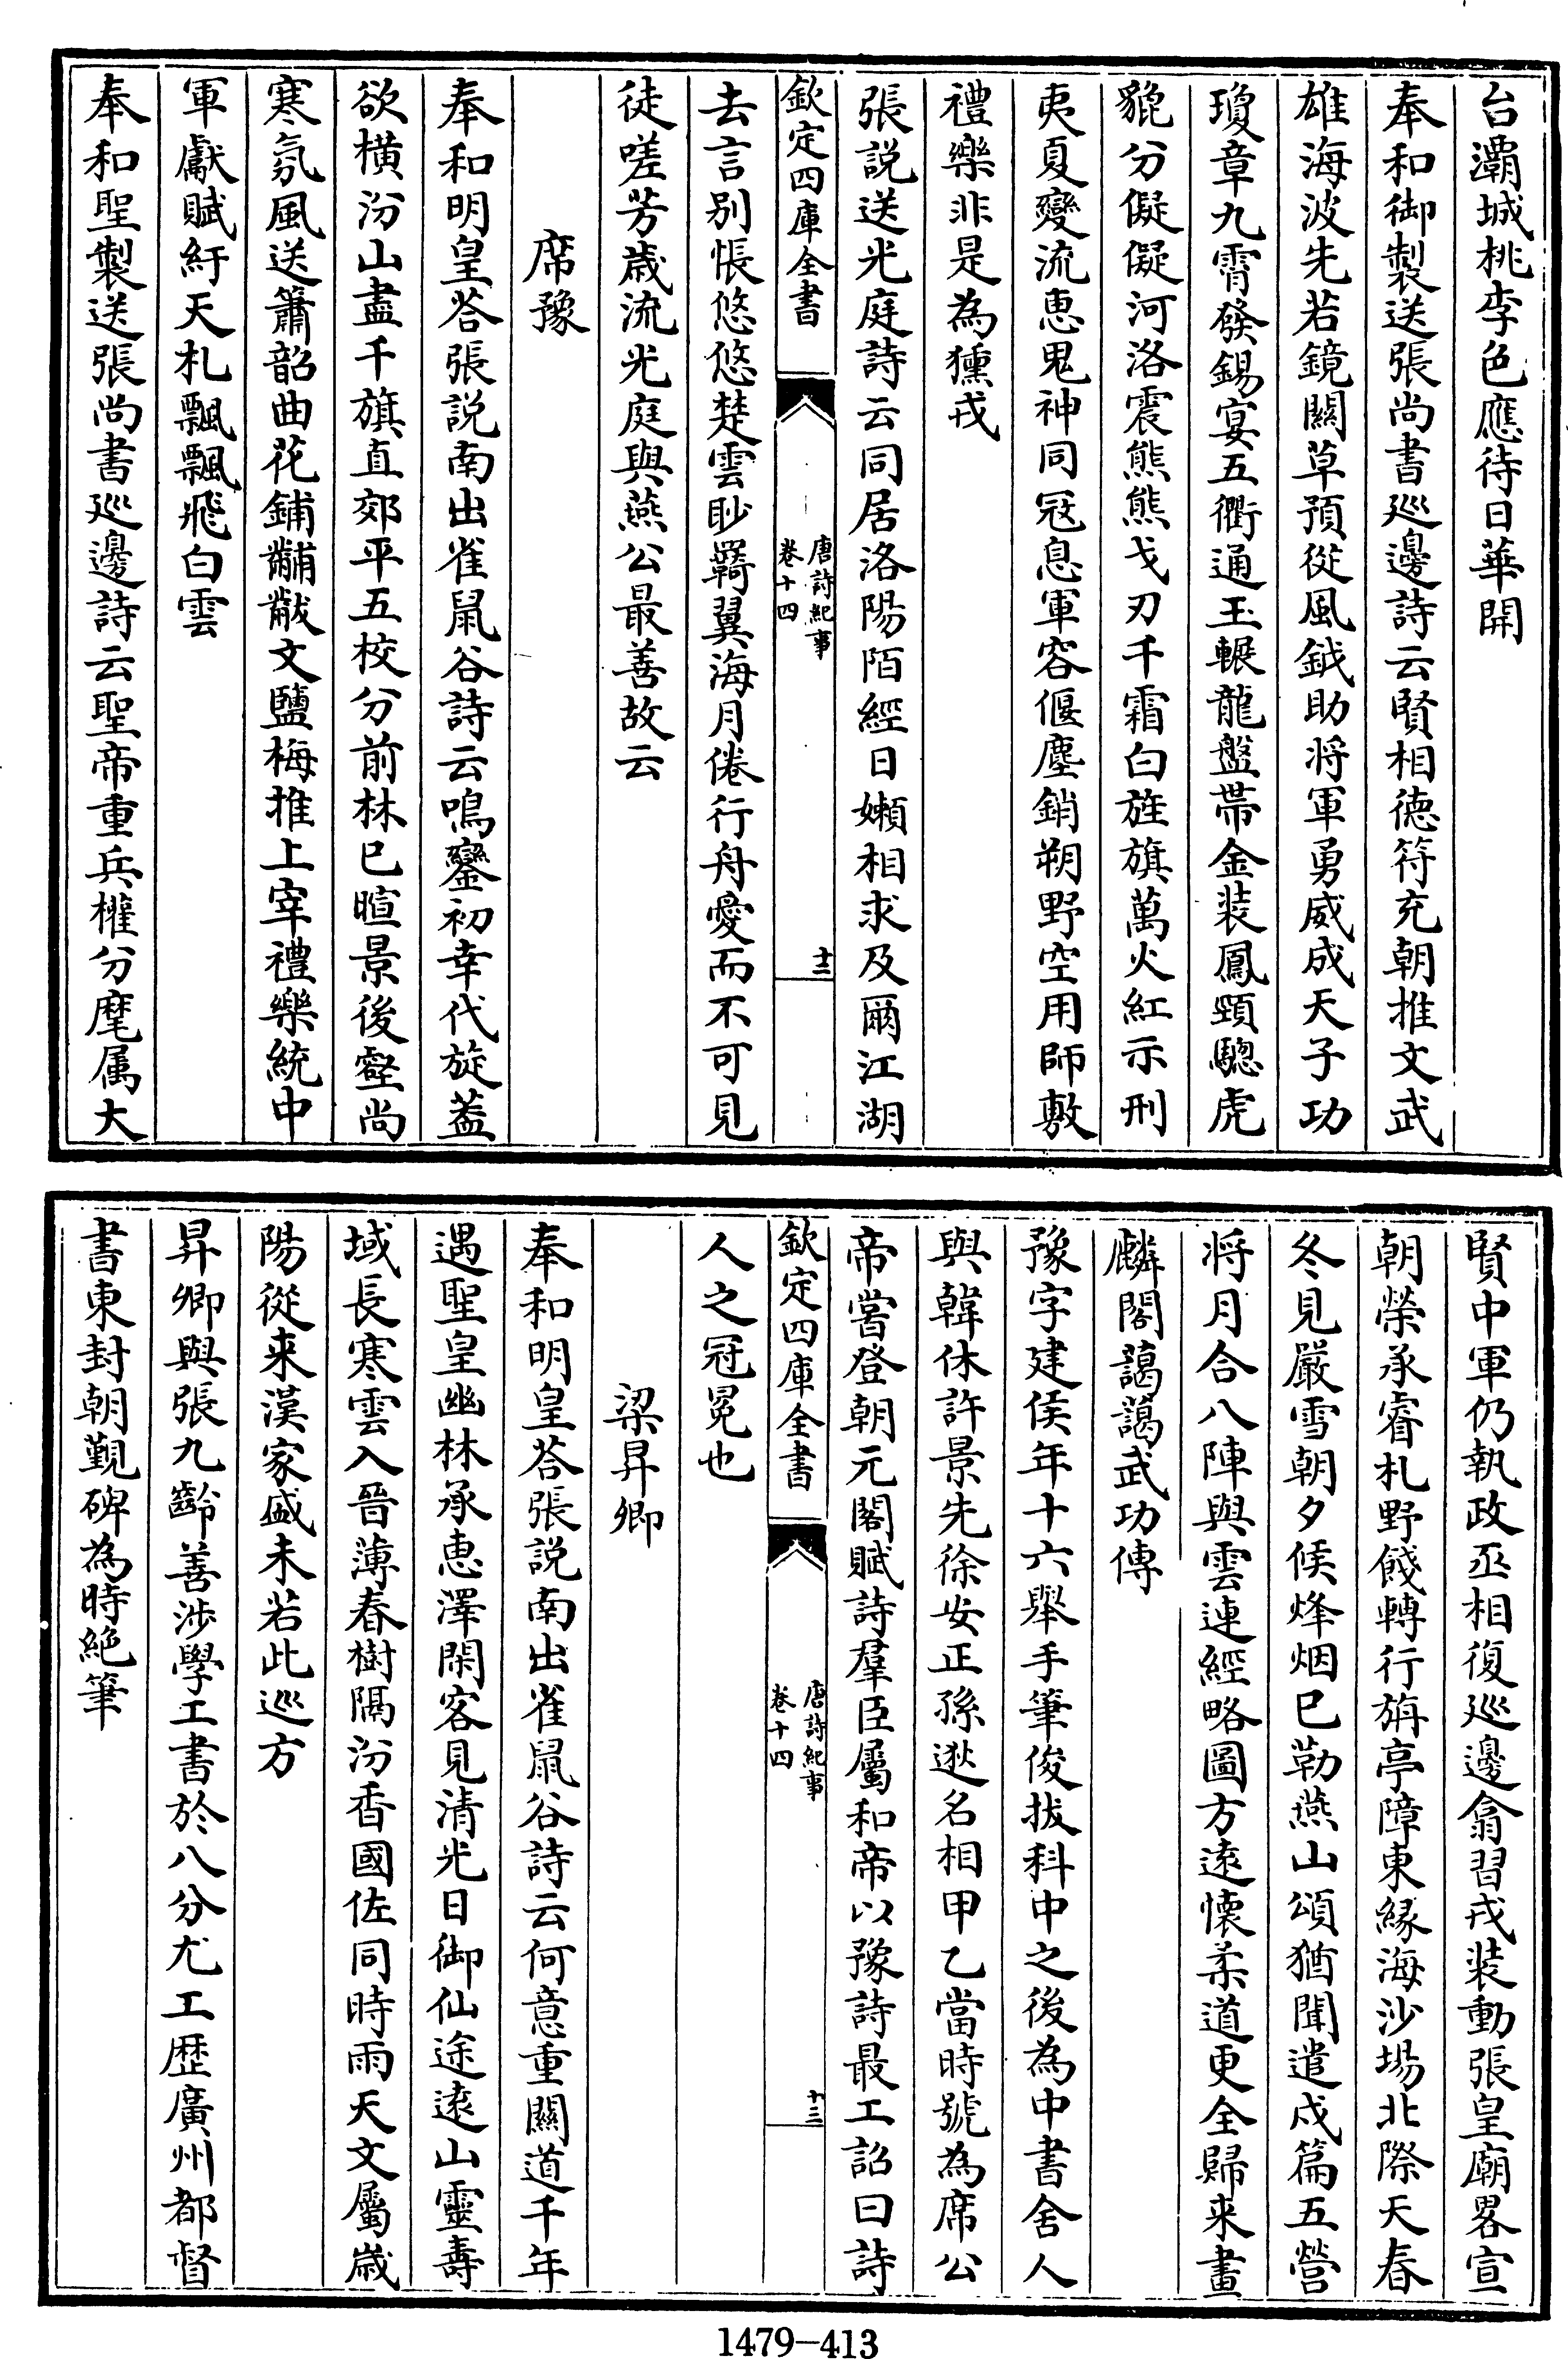 台灞城桃李色應待日華開
奉和御製送張尚書廵邊詩云賢相徳符充朝推文武
雄海波先若鏡闗草預從風鉞助将軍勇威成天子功
瓊章九霄發錫宴五衢通玉輾龍盤帶金装鳳頸驄虎
貔分儗儗河洛震熊熊戈刃千霜白旌旗萬火紅示刑
夷夏變流惠鬼神同冦息軍容偃塵銷朔野空用師敷
禮樂非是為獯戎
張説送光庭詩云同居洛陽陌經日嬾相求及爾江湖
欽定四庫全書
唐詩紀事
卷十四
十二
去言别悵悠悠楚雲眇羇翼海月倦行舟愛而不可見
徒嗟芳歳流光庭與燕公最善故云
席豫
奉和明皇荅張説南出雀鼠谷詩云鳴鑾初幸代旋葢
欲横汾山盡千旗直郊平五校分前林已暄景後壑尚
寒氛風送簫韶曲花鋪黼黻文鹽梅推上宰禮樂統中
軍獻賦紆天札飄飄飛白雲
奉和聖製送張尚書廵邊詩云聖帝重兵權分麾属大
賢中軍仍執政丞相復廵邊翕習戎装動張皇廟畧宣
朝榮承睿札野餞轉行旃亭障東縁海沙場北際天春
冬見嚴雪朝夕候烽烟已勒燕山頌猶聞遣戍篇五營
将月合八陣與雲連經略圖方逺懐柔道更全歸来畫
麟閣藹藹武功傳
豫字建侯年十六舉手筆俊拔科中之後為中書舍人
與韓休許景先徐安正孫逖名相甲乙當時號為席公
帝嘗登朝元閣賦詩羣臣屬和帝以豫詩最工詔曰詩
欽定四庫全書
唐詩紀事
卷十四
十三
人之冠冕也
梁昇卿
奉和明皇荅張説南出雀鼠谷詩云何意重闗道千年
遇聖皇幽林承惠澤閑客見清光日御仙途逺山靈壽
域長寒雲入晉薄春樹隔汾香國佐同時雨天文屬歳
陽從来漢家盛未若此廵方
昇卿與張九齡善涉學工書於八分尤工歴廣州都督
書東封朝覲碑為時絶筆
1479-413